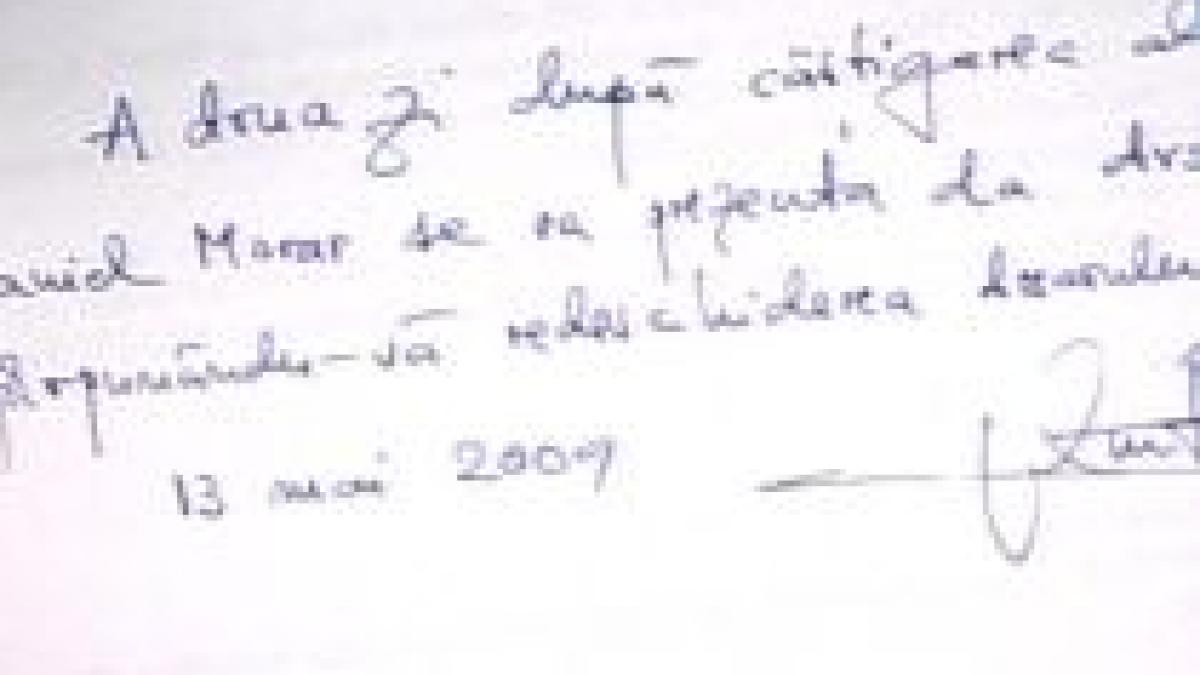 A doua zi după câștigarea al
aniel Marar se va prezenta la
propunându-vă redeschiderea
13 mai 2009